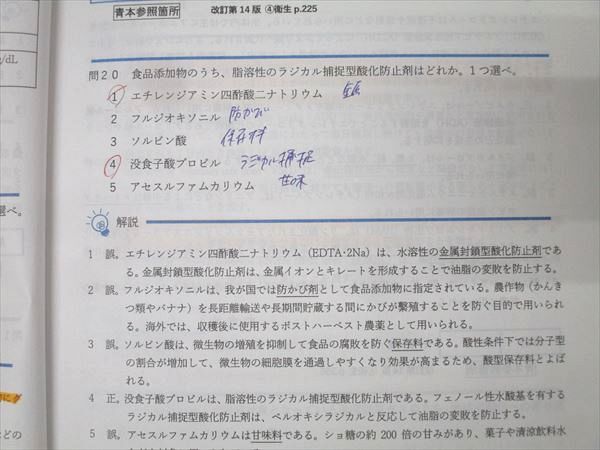 青本参照箇所 改訂第14版 ④衛生 p.225
g/dL
問20 食品添加物のうち、脂溶性のラジカル捕捉型酸化防止剤はどれか。1つ選べ。
1 エチレンジアミン四酢酸二ナトリウム
2 フルジオキソニル 防かび
3 ソルビン酸 保存料
4 没食子酸プロピル ラジカル捕捉
5 アセスルファムカリウム 甘味
選べ。
解説
1 誤。エチレンジアミン四酢酸二ナトリウム（EDTA・2Na）は、水溶性の金属封鎖型酸化防止剤であ
る。金属封鎖型酸化防止剤は、金属イオンとキレートを形成することで油脂の変敗を防止する。
2 誤。フルジオキソニルは、我が国では防かび剤として食品添加物に指定されている。農作物（かんき
つ類やバナナ）を長距離輸送や長期間貯蔵する間にかびが繁殖することを防ぐ目的で用いられ
る。海外では、収穫後に使用するポストハーベスト農薬として用いられる。
3 誤。ソルビン酸は、微生物の増殖を抑制して食品の腐敗を防ぐ保存料である。酸性条件下では分子型
の割合が増加して、微生物の細胞膜を通過しやすくなり効果が高まるため、酸型保存料とよば
れる。
4 正。没食子酸プロピルは、脂溶性のラジカル捕捉型酸化防止剤である。フェノール性水酸基を有する
ラジカル捕捉型酸化防止剤は、ペルオキシラジカルと反応して油脂の変敗を防止する。
5 誤。アセスルファムカリウムは甘味料である。ショ糖の約 200 倍の甘みがあり、菓子や清涼飲料水
どの